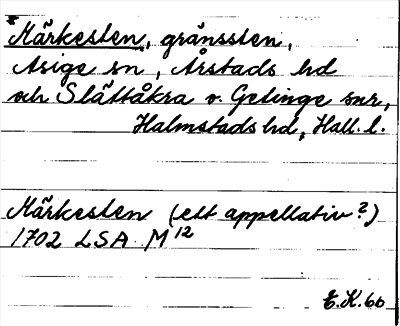 *Märkesten, gränssten,
Asige sn, Årstads hd
och Slättåkra o. Getinge snr,
Halmstads hd, Hall. l.
Märkesten (ett appellativ?)
1702 LSA M12
E.K. 66